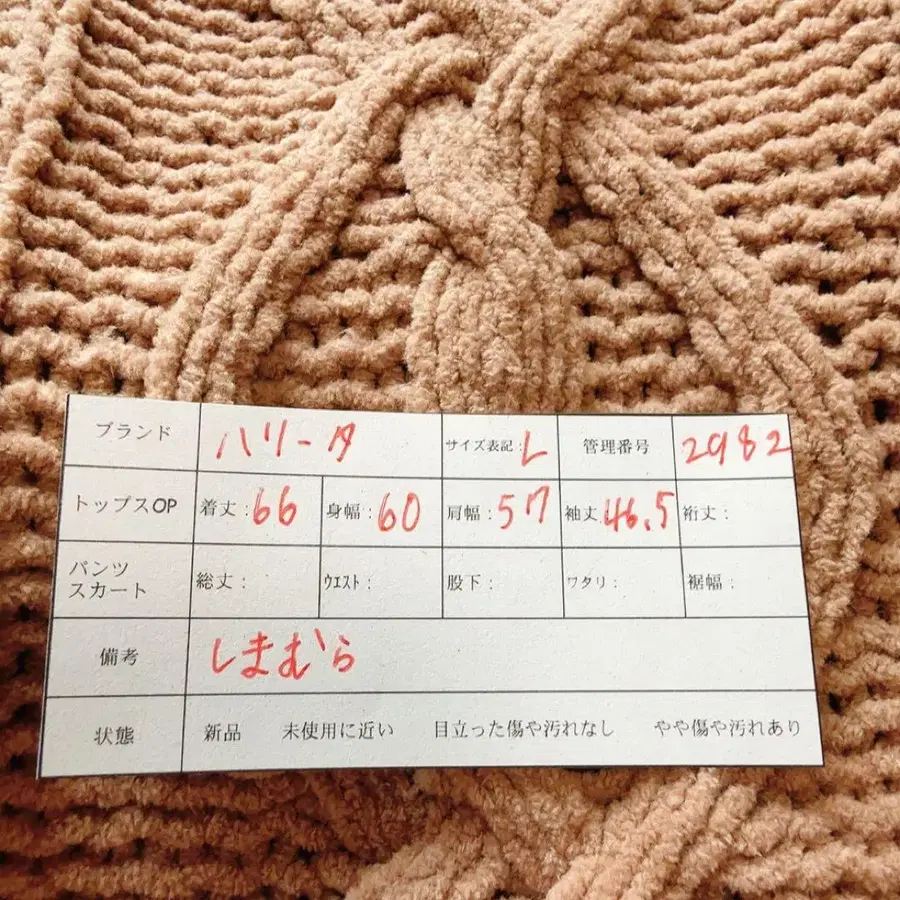 ブランド ハリータ サイズ表記:L 管理番号 2982
トップスOP 着丈:66 身幅:60 肩幅:57 袖丈:46.5 裄丈:
パンツ
スカート 総丈: ウエスト: 股下: ワタリ: 裾幅:
備考 しまむら
状態 新品 未使用に近い 目立った傷や汚れなし やや傷や汚れあり